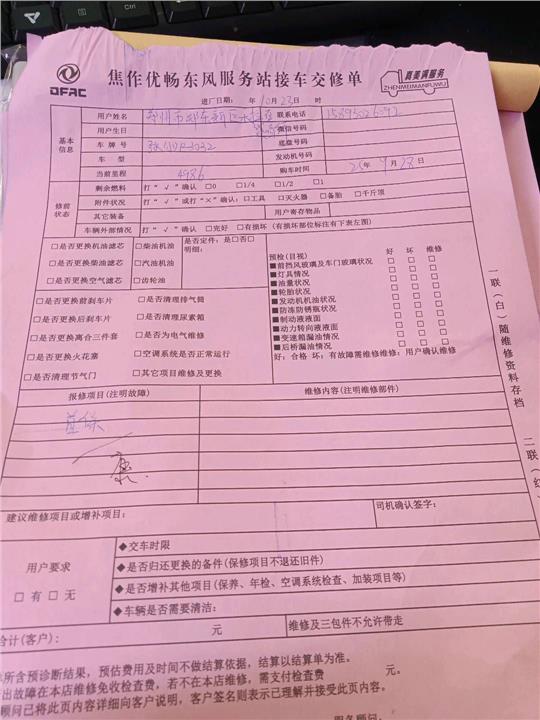 DFAC
焦作优畅东风服务站接车交修单
真美满服务
ZHENMEIMANFUWU
进厂日期： 年 10 月 23 日 时
基本信息
用户姓名
联系电话
用户生日
微信号码
车牌号
底盘号码
车型
发动机号码
当前里程 4986
购车时间 年 9 月 28 日
修前状态
剩余燃料 打“√”确认 □0 □1/4 □1/2 □1
附件状况 打“√”或打“×”确认：□工具 □灭火器 □备胎 □千斤顶
其它装备 用户寄存物品
车辆外部情况 打“√”确认 □完好 □有损坏（有损坏部位标注有下表左图）
□是否更换机油滤芯 □柴油机油 是否定件：是□否□
明细：
□是否更换柴油滤芯 □汽油机油
□是否更换空气滤芯 □齿轮油
□是否更换前刹车片 □是否清理排气筒
□是否更换后刹车片 □是否清理尿素箱
□是否更换离合三件套 □是否为电气维修
□是否更换火花塞 □空调系统是否正常运行
□是否清理节气门 □其它项目维修及更换
预检(目视) 好 坏 维修
■前挡风玻璃及车门玻璃状况 □ □ □
■灯具情况 □ □ □
■油量状况 □ □ □
■轮胎状况 □ □ □
■发动机机油状况 □ □ □
■防冻防锈瓶状况 □ □ □
■制动液液面 □ □ □
■动力转向液液面 □ □ □
■变速箱漏油情况 □ □ □
■后桥漏油情况 □ □ □
好：合格 坏：有故障需维修维修：用户确认维修
报修项目(注明故障) 维修内容(注明维修部件)
建议维修项目或增补项目：
司机确认签字：
用户要求
□ 有 □ 无
◆交车时限
◆是否归还更换的备件(保修项目不退还旧件)
◆是否增补其他项目(保养、年检、空调系统检查、加装项目等)
◆车辆是否需要清洁：
合计(客户)： 元 维修及三包件不允许带走
所含预诊断结果，预估费用及时间不做结算依据，结算以结算单为准。
出故障在本店维修免收检查费，若不在本店维修，需支付检查费 元。
顾问已将此页内容详细向客户说明，客户签名则表示已理解并接受此页内容。
服务顾问：
一联（白）随维修资料存档
二联（红